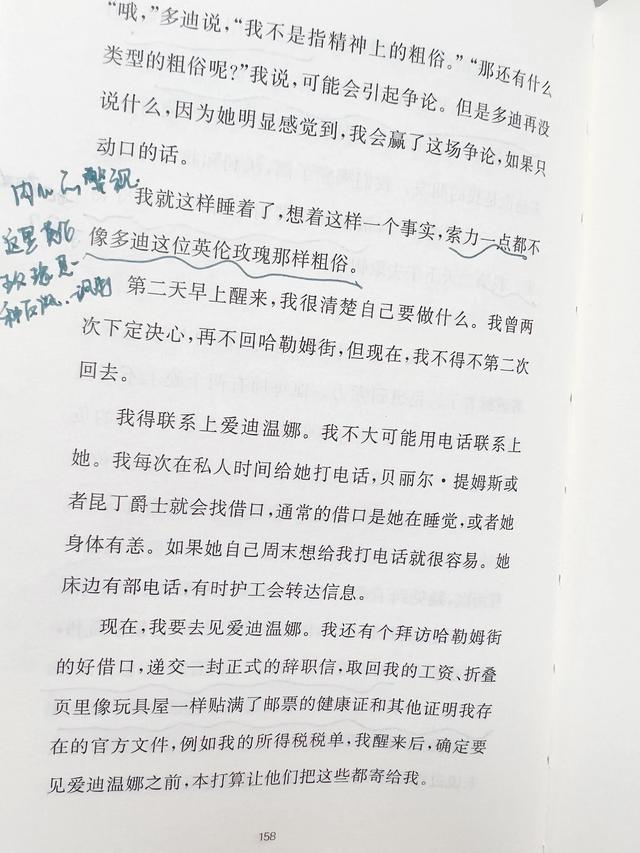 “哦,”多迪说,“我不是指精神上的粗俗。”“那还有什么
类型的粗俗呢?”我说,可能会引起争论。但是多迪再没
说什么,因为她明显感觉到,我会赢了这场争论,如果只
动口的话。
内心的
我就这样睡着了,想着这样一个事实,索力一点都不
这里
像多迪这位英伦玫瑰那样粗俗。
玫瑰是一
种反讽.
第二天早上醒来,我很清楚自己要做什么。我曾两
次下定决心,再不回哈勒姆街,但现在,我不得不第二次
回去。
我得联系上爱迪温娜。我不大可能用电话联系上
她。我每次在私人时间给她打电话,贝丽尔·提姆斯或
者昆丁爵士就会找借口,通常的借口是她在睡觉,或者她
身体有恙。如果她自己周末想给我打电话就很容易。她
床边有部电话,有时护工会转达信息。
现在,我要去见爱迪温娜。我还有个拜访哈勒姆街
的好借口,递交一封正式的辞职信,取回我的工资、折叠
页里像玩具屋一样贴满了邮票的健康证和其他证明我存
在的官方文件,例如我的所得税税单,我醒来后,确定要
见爱迪温娜之前,本打算让他们把这些都寄给我。
158